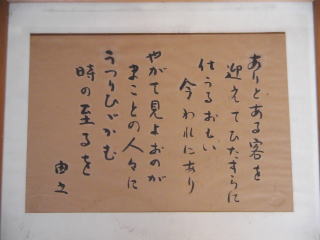 ありとある客を
迎えてひたすらに
仕うるおもい
今われにあり
やがて見よおのが
まことの人々に
うつりひゞかむ
時の至るを
由之